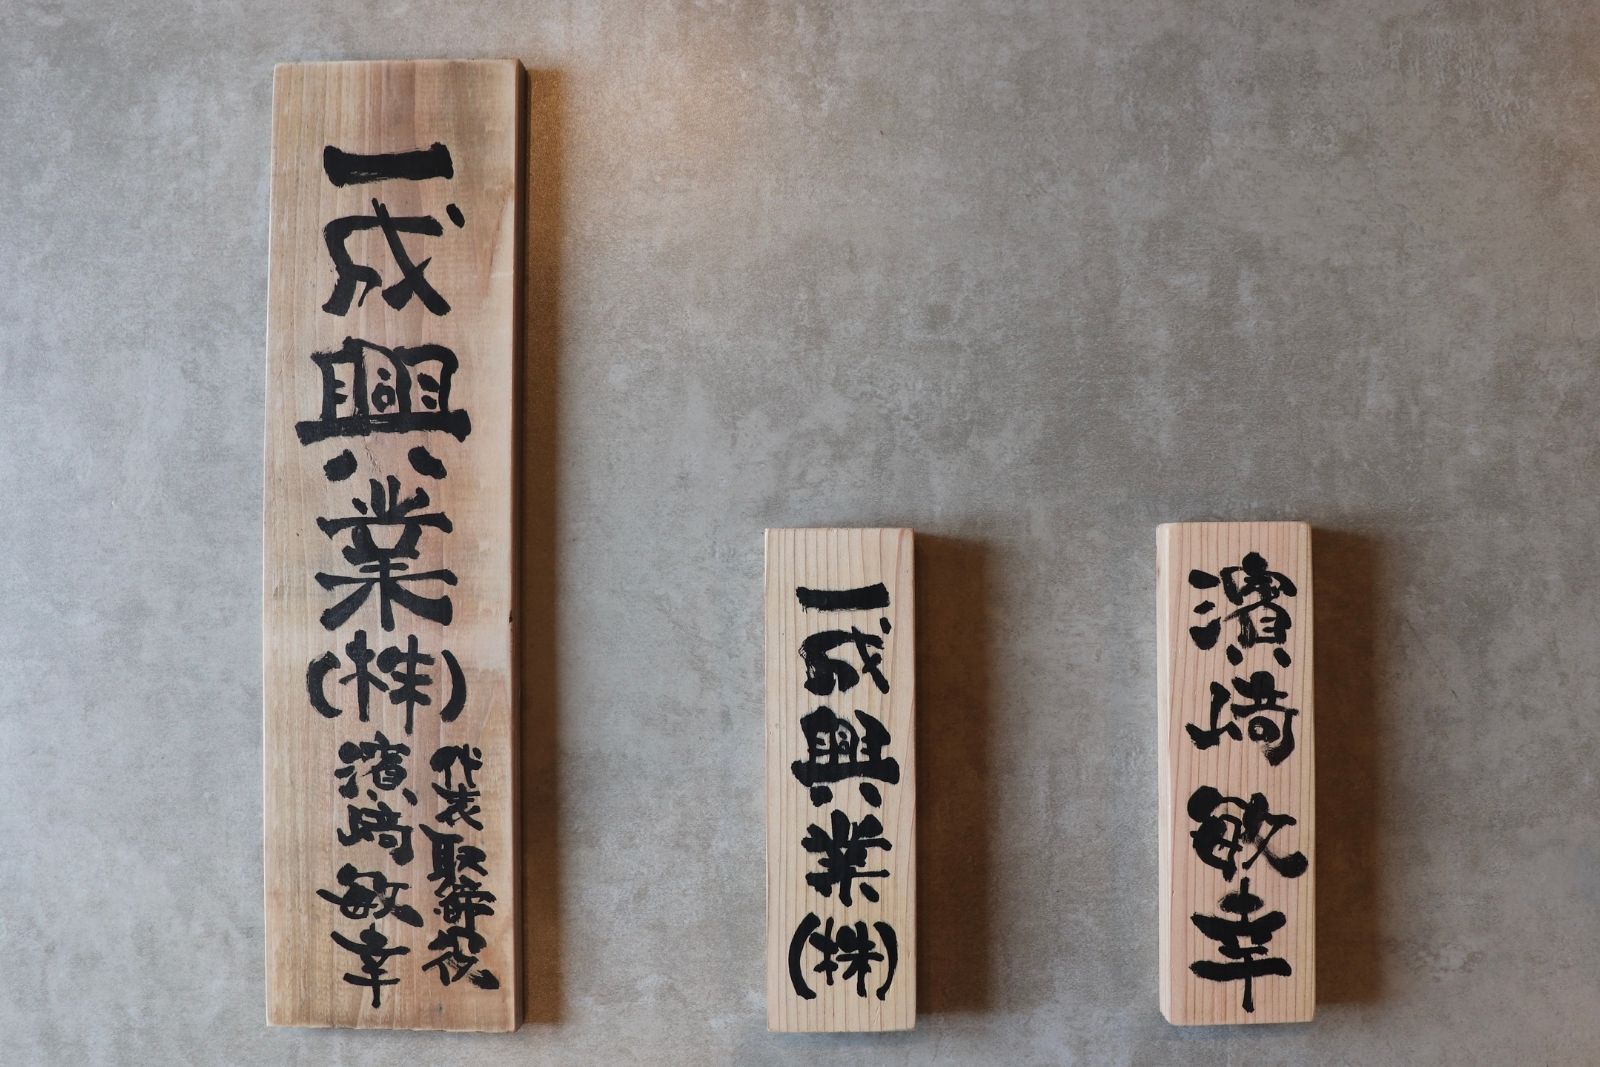 一成興業(株)
代表取締役
濵﨑敏幸
一成興業(株)
濵﨑敏幸